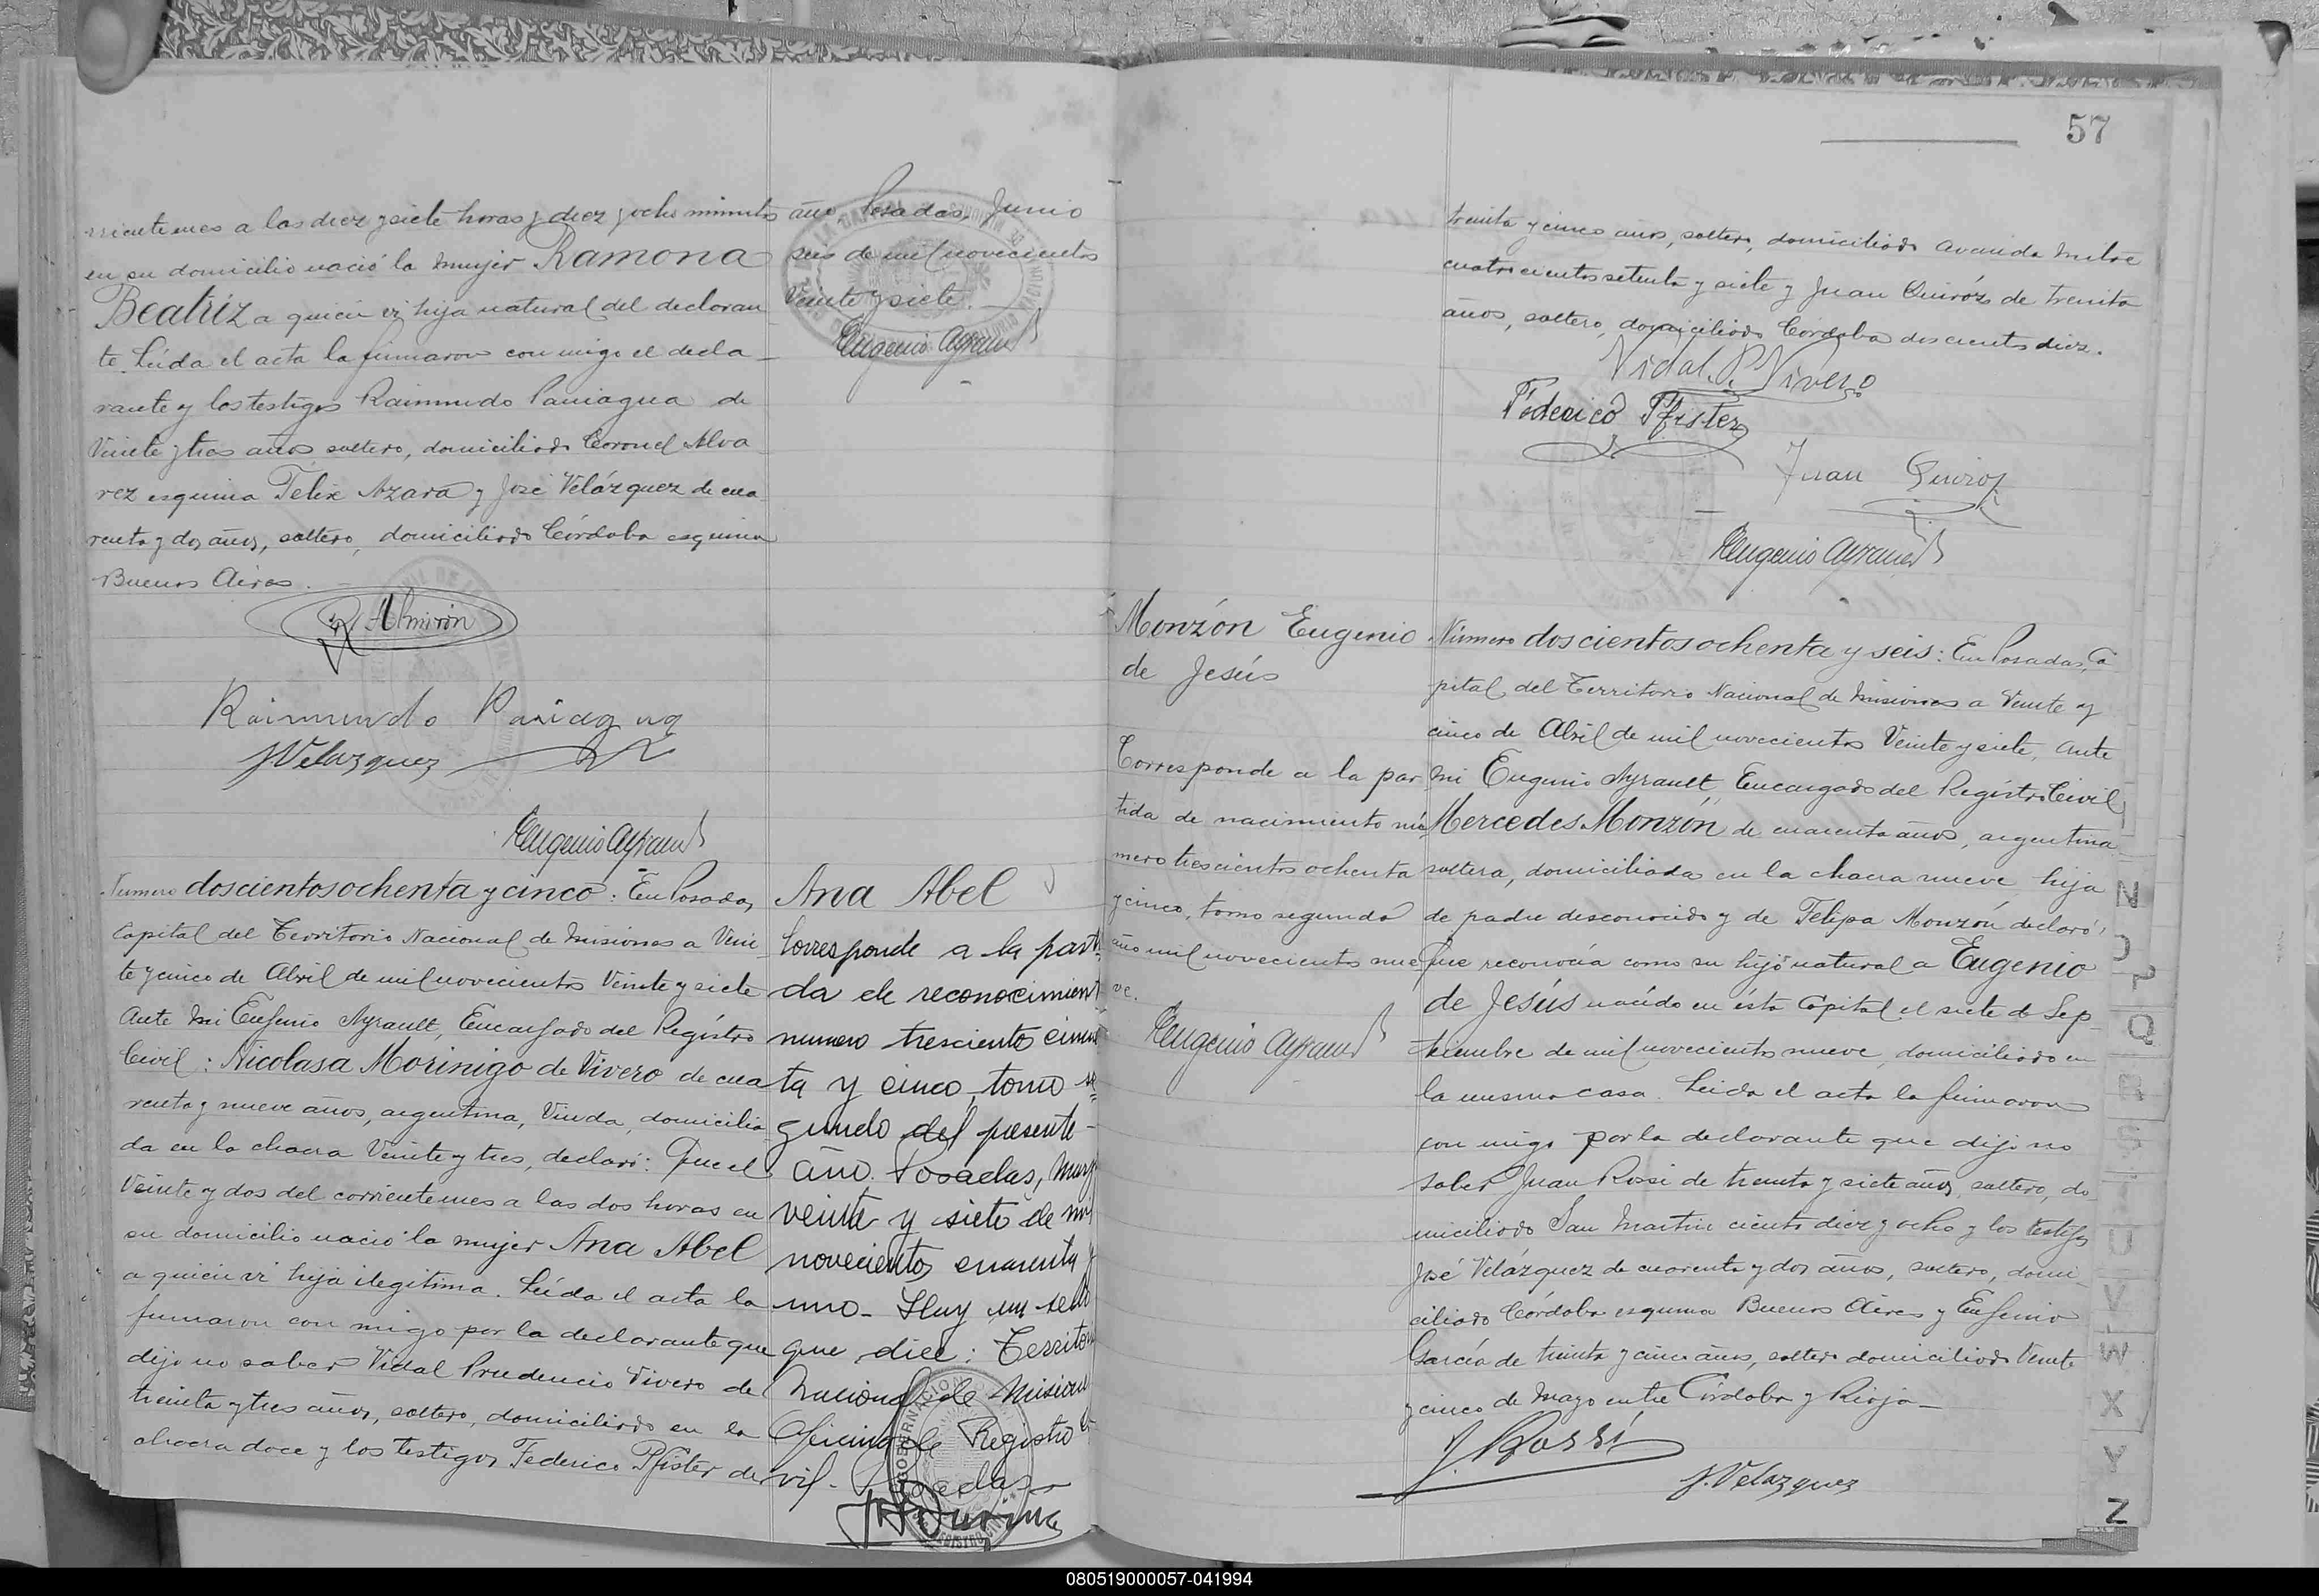 rriente mes a las diez y siete horas y diez y ocho minutos
en su domicilio nació la mujer Ramona
Beatriz a quien vi hija natural del declaran
te. Leída el acta la firmaron con migo el decla
rante y los testigos Raimundo Paniagua de
Veinte y tres años soltero, domiciliado Coronel Alva
rez esquina Felix Azara y José Velázquez de cua
renta y dos años, soltero, domiciliado Córdoba esquina
Buenos Aires.
R. Almirón
Raimundo Paniagua
J Velazquez
Eugenio Ayrault
año Posadas, Junio
seis de mil novecientos
Veinte y siete.
Eugenio Ayrault
Numero doscientos ochenta y cinco: En Posadas,
Capital del Territorio Nacional de Misiones a Vein
te y cinco de Abril de mil novecientos Veinte y siete
Ante mi Eugenio Ayrault, Encargado del Registro
Civil: Nicolasa Morinigo de Vivero de cua
renta y nueve años, argentina, Viuda, domicilia
da en la chacra Veinte y tres, declaró: Que el
Veinte y dos del corriente mes a las dos horas en
su domicilio nació la mujer Ana Abel
a quien vi hija ilegitima. Leída el acta la
firmaron con migo por la declarante que
dijo no saber Vidal Prudencio Vivero de
treinta y tres años, soltero, domiciliado en la
chacra doce y los testigos Federico Pfister de
Ana Abel
Corresponde a la parti
da de reconocimient
numero tresciento cincuen
ta y cinco, tomo se
gundo del presente
año. Posadas,
veinte y siete de mil
novecientos cuarenta y
uno. Hay un sello
que dice: Territorio
Nacional de Misiones
Oficina de Registro Ci
vil. Posadas
57
treinta y cinco años, soltero, domiciliado avenida Mitre
cuatrocientos setenta y siete y Juan Quiróz de treinta
años, soltero, domiciliado Córdoba doscientos diez.
Vidal P. Vivero
Federico Pfister
Juan Quiroz
Eugenio Ayrault
Monzón Eugenio
de Jesús
Corresponde a la par
tida de nacimiento nú
mero trescientos ochenta
y cinco, tomo segundo
año mil novecientos nue
ve.
Eugenio Ayrault
Número doscientos ochenta y seis: En Posadas, Ca
pital del Territorio Nacional de Misiones a Veinte y
cinco de Abril de mil novecientos Veinte y siete, ante
mi Eugenio Ayrault, Encargado del Registro Civil
Mercedes Monzón de cuarenta años, argentina
soltera, domiciliada en la chacra nueve hija
de padre desconocido y de Felipa Monzón declaró:
Que reconocía como su hijo natural a Eugenio
de Jesús nacido en ésta Capital el siete de Sep
tiembre de mil novecientos nueve, domiciliado en
la misma casa. Leída el acta la firmaron
con migo por la declarante que dijo no
saber Juan Rossi de treinta y siete años, soltero, do
miciliado San Martin ciento diez y ocho y los testigos
José Velázquez de cuarenta y dos años, soltero, domi
ciliado Córdoba esquina Buenos Aires y Eugenio
García de treinta y cinco años, soltero domiciliado Veinte
y cinco de Mayo entre Córdoba y Rioja
J. Rossi
J. Velazquez
N
P
Q
R
S
U
V
W
X
Y
Z
080519000057-041994